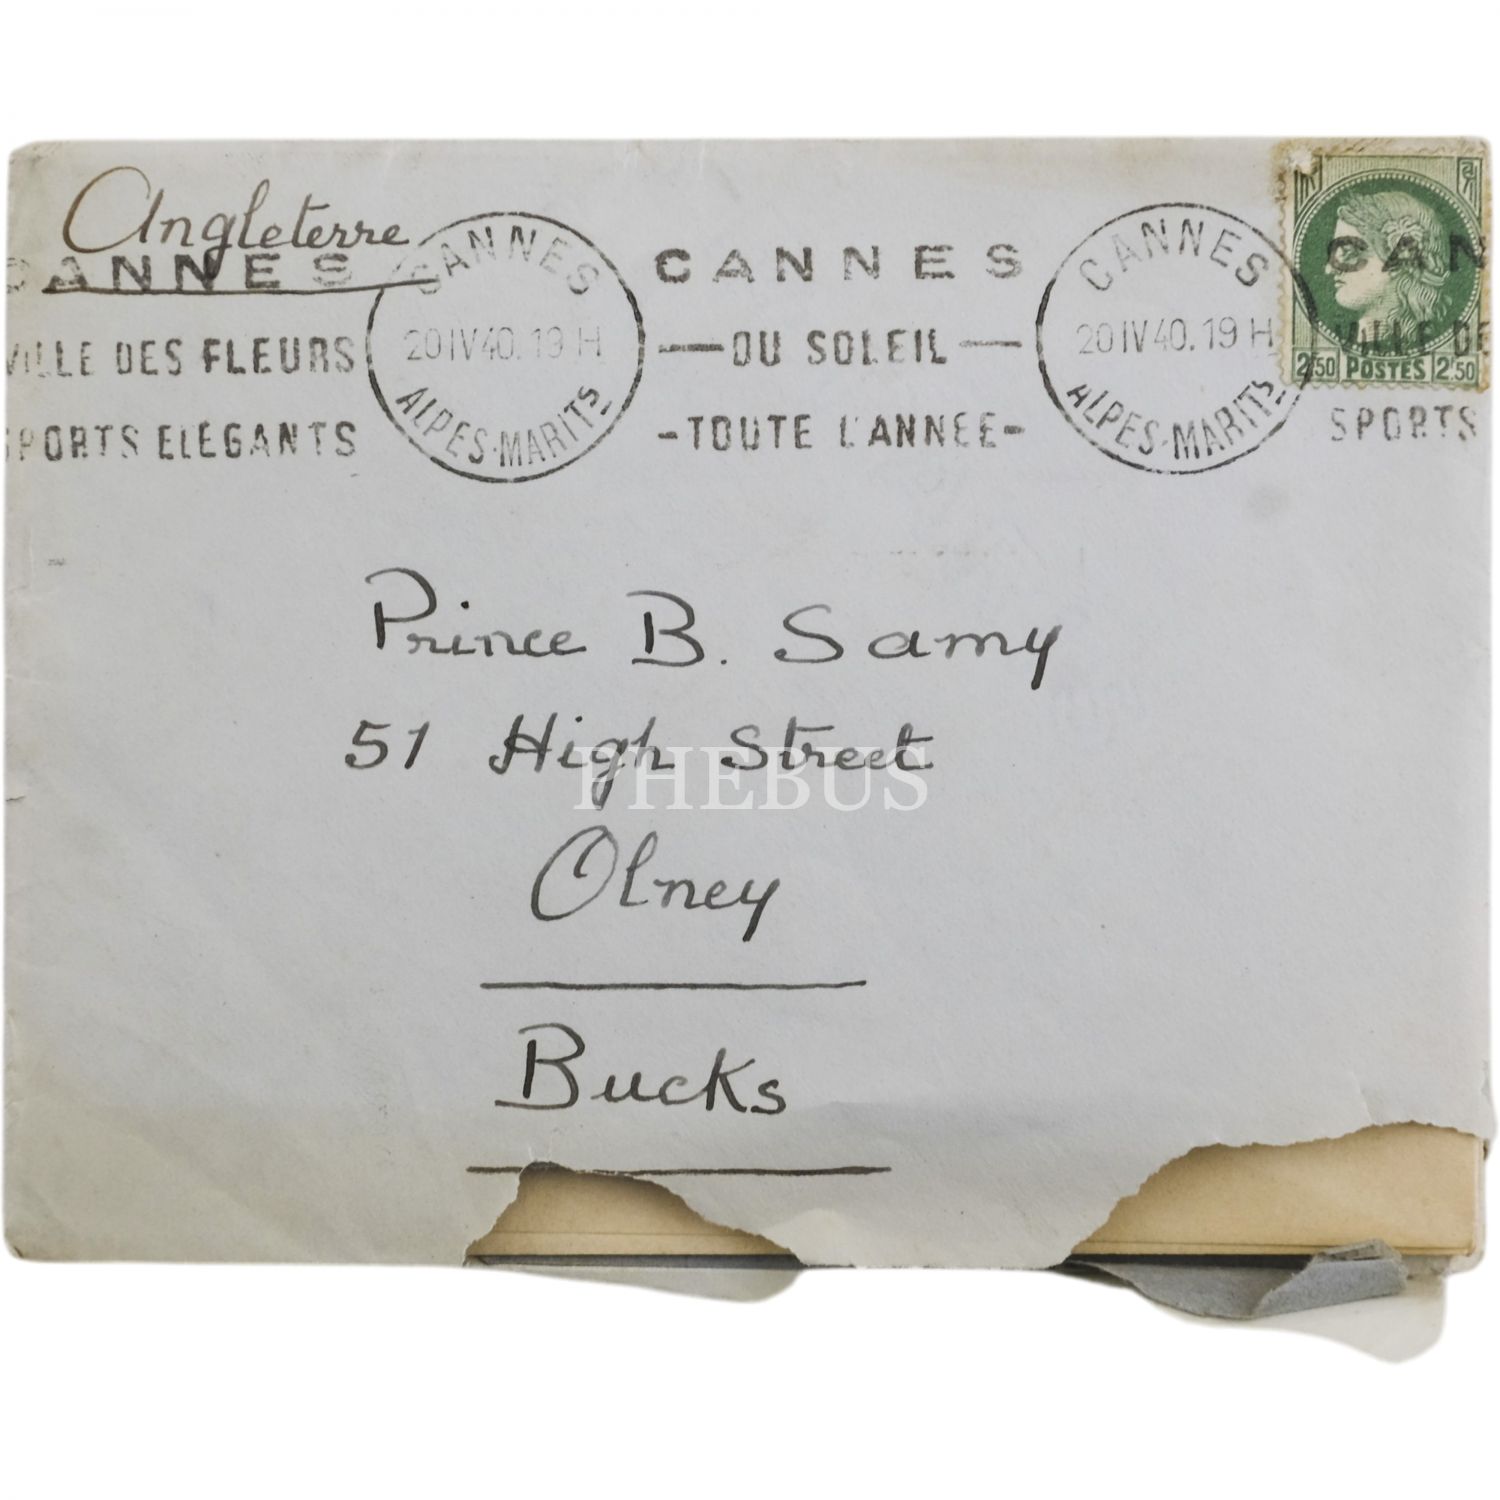 Angleterre
CANNES
VILLE DES FLEURS
SPORTS ELEGANTS
CANNES
20 IV 40. 19 H
ALPES-MARITS
CANNES
— DU SOLEIL —
- TOUTE L'ANNEE -
CANNES
20 IV 40. 19 H
ALPES-MARITS
CAN
VILLE DE
SPORTS
2f50 POSTES 2f50
Prince B. Samy
51 High Street
PHEBUS
Olney
Bucks